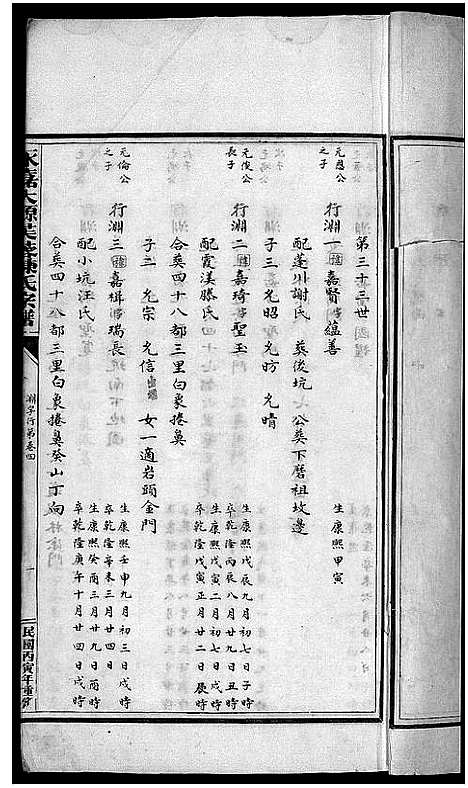 第三十三世
元恩公
之子
行淵一 諱嘉賢字蘊善
生康熙甲寅
配蓬川謝氏 葬後坑 公葬下磨祖坟邊
子三 允昭 允昉 允晴
元俊公
長子
行淵二 諱嘉琦字聖玉
生康熙戊辰九月初七日子時
卒乾隆丙辰八月廿九日丑時
配霞渼滕氏
生康熙戊寅二月初七日戌時
卒乾隆戊寅正月廿二日辰時
合葬四十八都三里白象捲鼻
子二 允宗 允信出繼 女一適岩頭金門
元倫公
之子
行淵三 諱嘉楫字瑞長
生康熙壬申九月初三日戌時
卒乾隆辛未三月廿四日
配小坑汪氏
生康熙癸酉三月廿九日酉時
卒乾隆庚午十月廿四日戌時
合葬四十八都三里白象捲鼻癸山丁向
淵字行第卷四
民國丙寅年重修